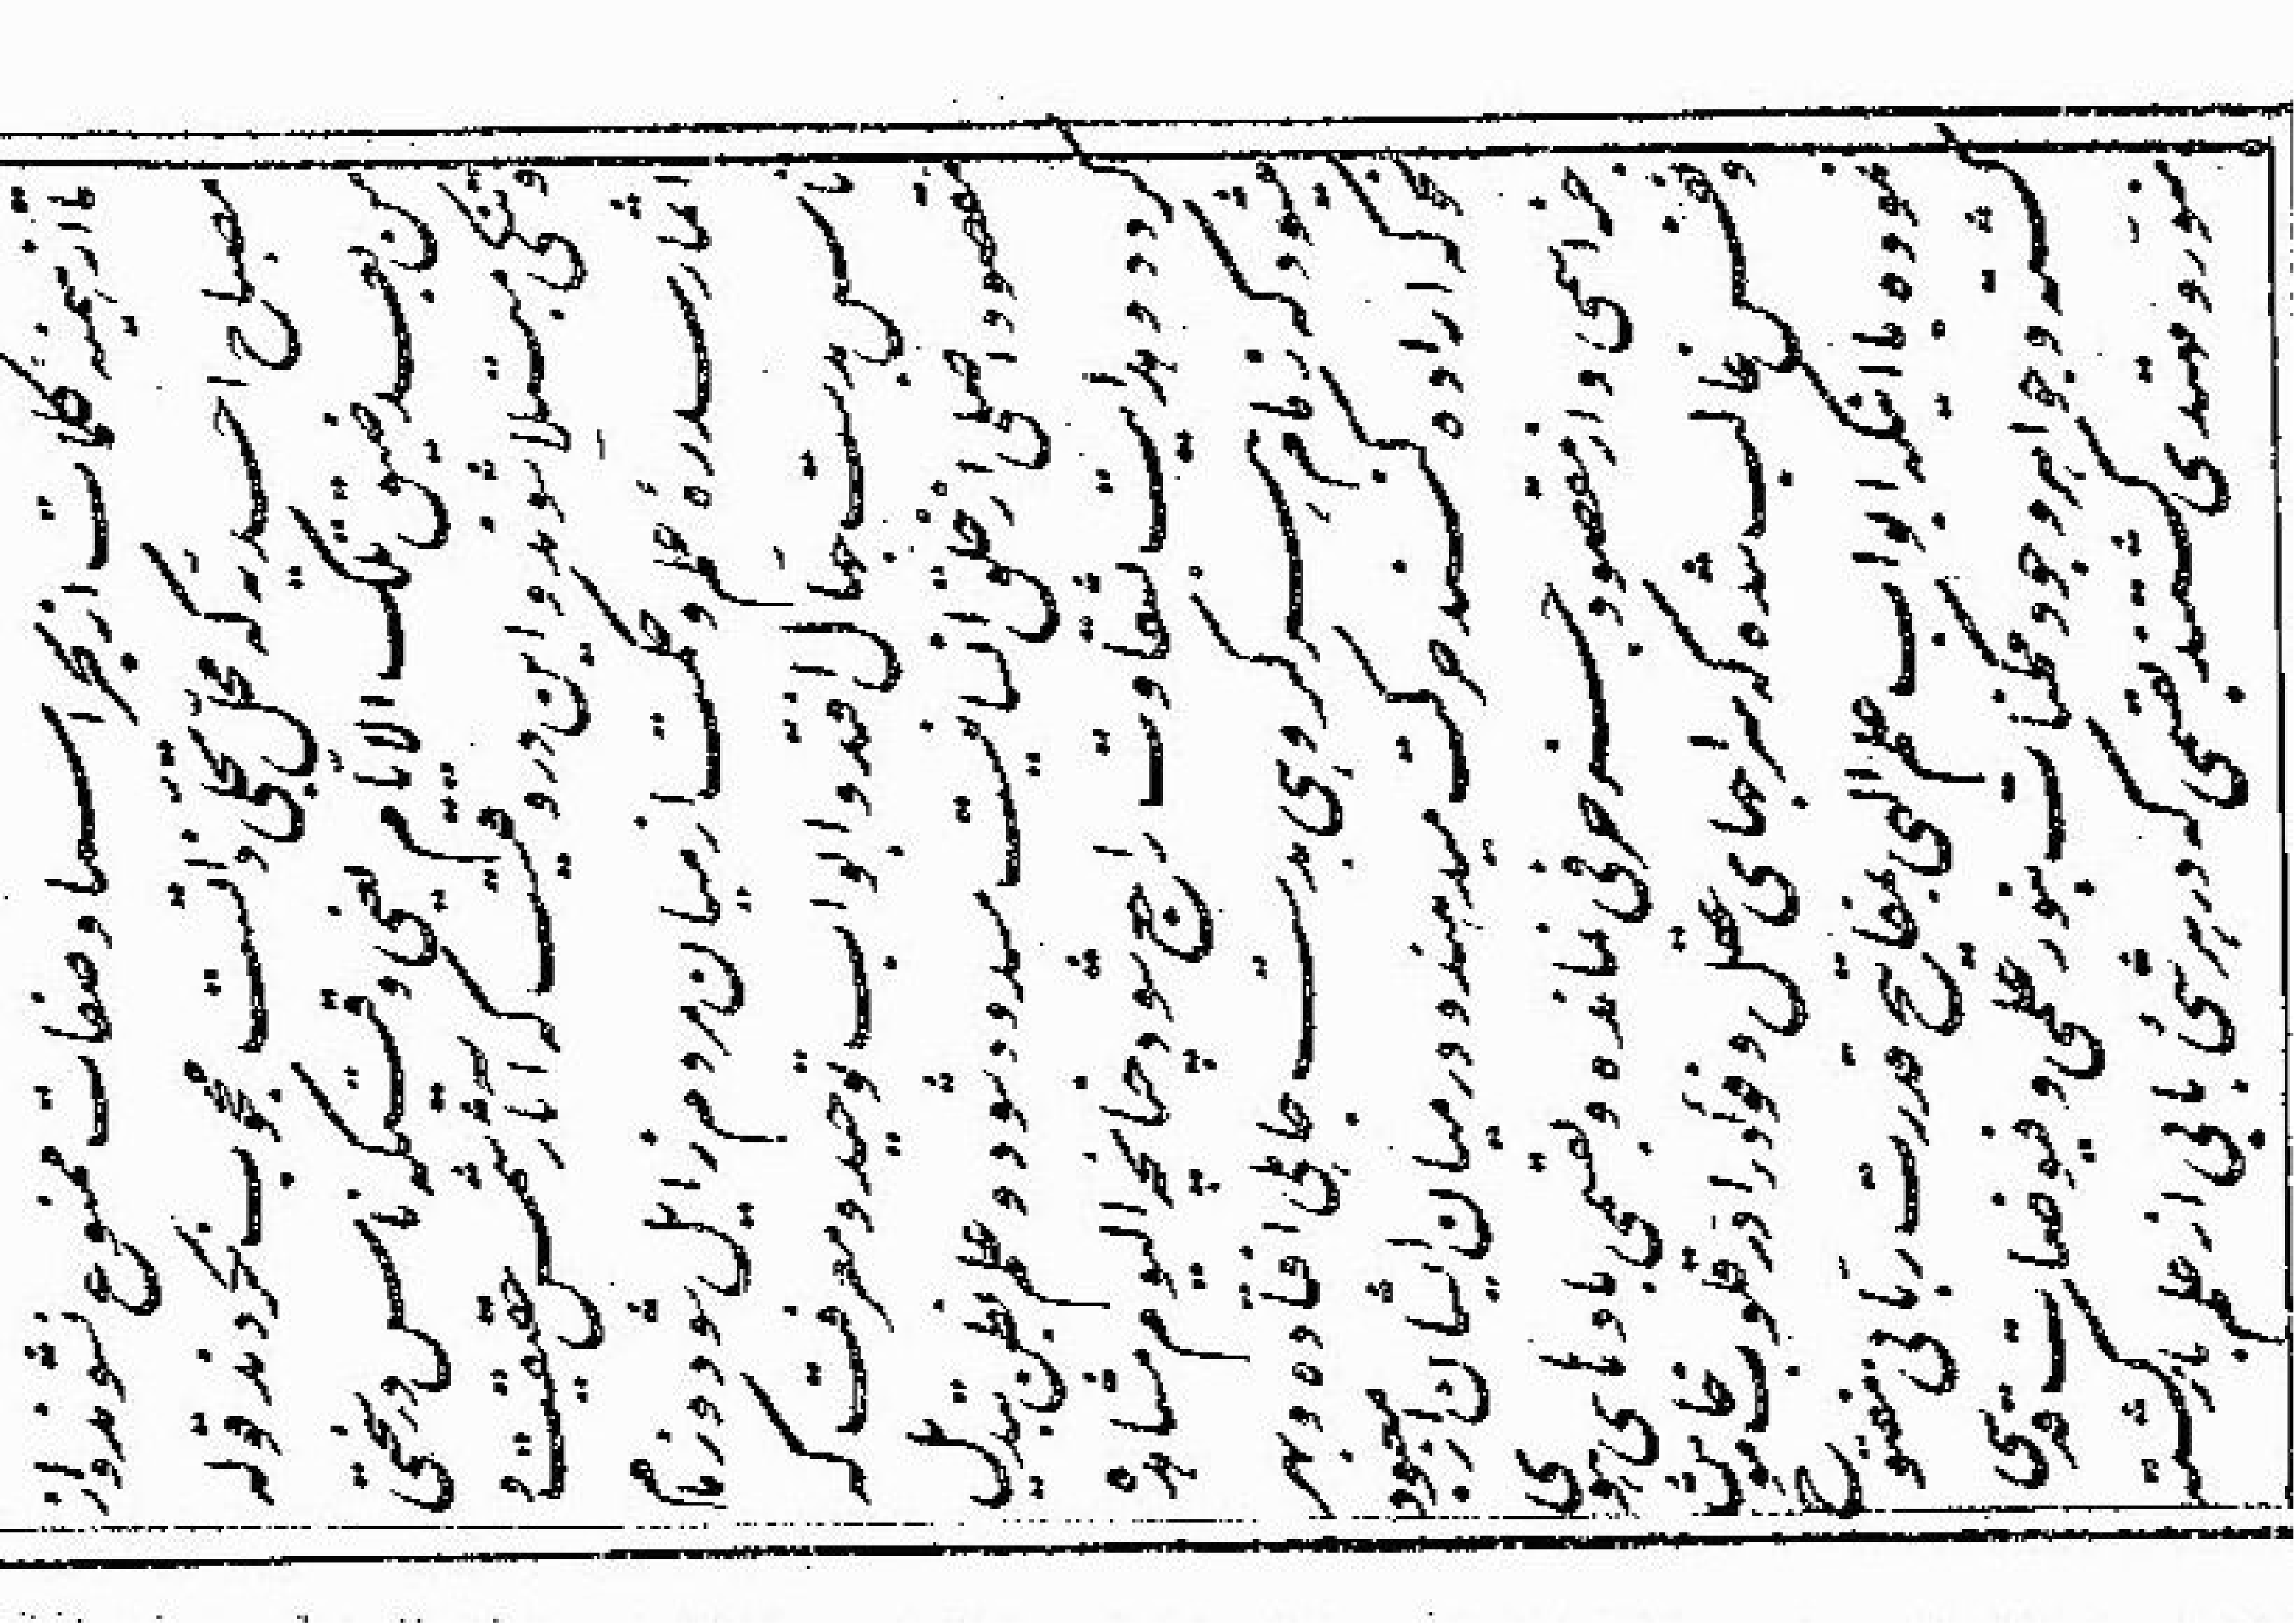 تا از کائنات از بحر اسما و صفات ممنوع نشوند و از
مصباح احدیه که محل تجلی ذاتست محجوب نگردند قوله
من بعد ضیق تلک الایام یعنی وقتیکه ناس در سختی
و تنگی مبتلا شوند و این در وقتیست که آثار شمس حقیقت
و اثمار سدرهٔ علم و حکمت از میان مردم زائل شود و زمام
ناس بدست جهال افتد و ابواب توحید و معرفت که
مقصود اصلی از خلق انسانیست مسدود شود و علم بظن تبدیل
گردد و هدایت بشقاوت راجع شود چنانچه الیوم مشاهده
میشود که زمام هر گروهی بدست جاهلی افتاده و بهر
نحو که اراده کنند حرکت میدهند و در میان ایشان از معبود
جز اسمی و از مقصود جز حرفی نمانده و بقسمی بادهای هوی
و نفس غالب شده که سراجهای عقل و فؤاد را در قلوب خاموش
نموده با اینکه ابواب علم الهی بمفاتیح قدرت ربانی مفتوح
گشته و جواهر وجود ممکنات بنور علمی و فیوضات قدسی
منور و مهتدی گشتند بقسمی که در هر شیئ بابی از علم باز گشته